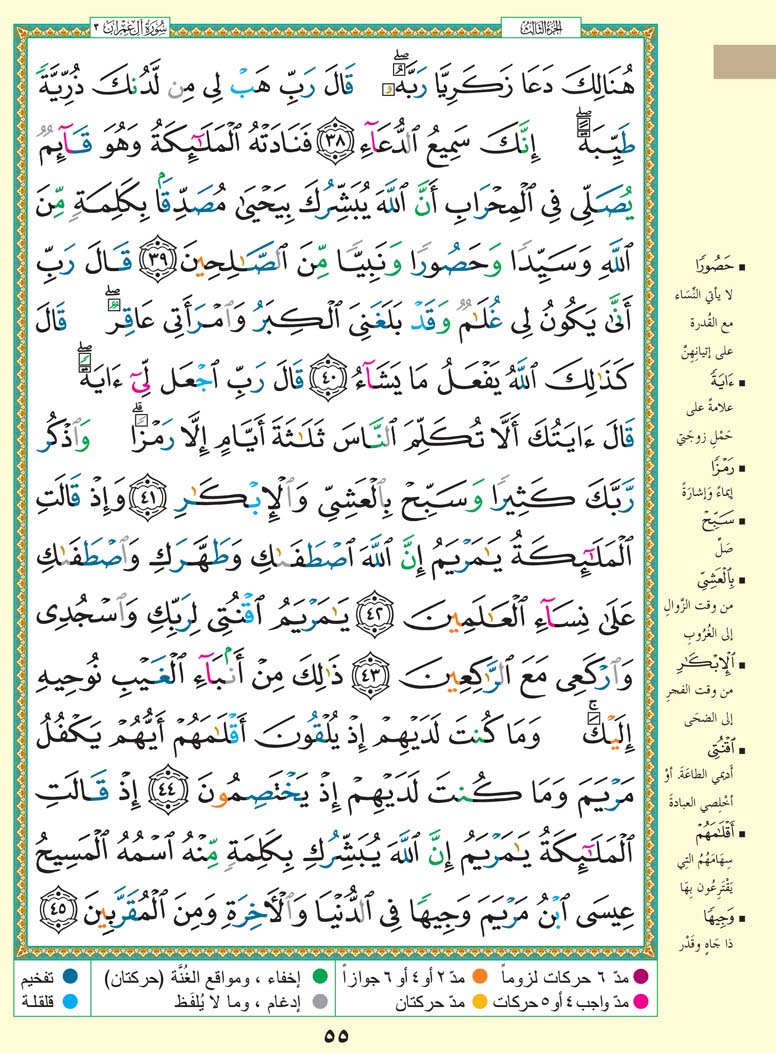 الجزء الثالث
سورة آل عمران ٣
هُنَالِكَ دَعَا زَكَرِيَّا رَبَّهُۥ ۖ قَالَ رَبِّ هَبْ لِى مِن لَّدُنكَ ذُرِّيَّةً
طَيِّبَةً ۖ إِنَّكَ سَمِيعُ الدُّعَآءِ ٣٨ فَنَادَتْهُ الْمَلَٰٓئِكَةُ وَهُوَ قَآئِمٌ
يُصَلِّى فِى الْمِحْرَابِ أَنَّ اللَّهَ يُبَشِّرُكَ بِيَحْيَىٰ مُصَدِّقًۢا بِكَلِمَةٍ مِّنَ
اللَّهِ وَسَيِّدًا وَحَصُورًا وَنَبِيًّا مِّنَ الصَّٰلِحِينَ ٣٩ قَالَ رَبِّ
أَنَّىٰ يَكُونُ لِى غُلَٰمٌ وَقَدْ بَلَغَنِىَ الْكِبَرُ وَامْرَأَتِى عَاقِرٌ ۖ قَالَ
كَذَٰلِكَ اللَّهُ يَفْعَلُ مَا يَشَآءُ ٤٠ قَالَ رَبِّ اجْعَل لِّىٓ ءَايَةً ۖ
قَالَ ءَايَتُكَ أَلَّا تُكَلِّمَ النَّاسَ ثَلَٰثَةَ أَيَّامٍ إِلَّا رَمْزًا ۗ وَاذْكُر
رَّبَّكَ كَثِيرًا وَسَبِّحْ بِالْعَشِىِّ وَالْإِبْكَٰرِ ٤١ وَإِذْ قَالَتِ
الْمَلَٰٓئِكَةُ يَٰمَرْيَمُ إِنَّ اللَّهَ اصْطَفَىٰكِ وَطَهَّرَكِ وَاصْطَفَىٰكِ
عَلَىٰ نِسَآءِ الْعَٰلَمِينَ ٤٢ يَٰمَرْيَمُ اقْنُتِى لِرَبِّكِ وَاسْجُدِى
وَارْكَعِى مَعَ الرَّٰكِعِينَ ٤٣ ذَٰلِكَ مِنْ أَنۢبَآءِ الْغَيْبِ نُوحِيهِ
إِلَيْكَ ۚ وَمَا كُنتَ لَدَيْهِمْ إِذْ يُلْقُونَ أَقْلَٰمَهُمْ أَيُّهُمْ يَكْفُلُ
مَرْيَمَ وَمَا كُنتَ لَدَيْهِمْ إِذْ يَخْتَصِمُونَ ٤٤ إِذْ قَالَتِ
الْمَلَٰٓئِكَةُ يَٰمَرْيَمُ إِنَّ اللَّهَ يُبَشِّرُكِ بِكَلِمَةٍ مِّنْهُ اسْمُهُ الْمَسِيحُ
عِيسَى ابْنُ مَرْيَمَ وَجِيهًا فِى الدُّنْيَا وَالْءَاخِرَةِ وَمِنَ الْمُقَرَّبِينَ ٤٥
▪ حَصُورًا
لا يأتي النِّسَاء
مع القُدرة
على إتيانِهِنَّ
▪ ءَايَةً
علامةً على
حَمْلِ زوجتي
▪ رَمْزًا
إيماءً وَإشارَةً
▪ سَبِّحْ
صَلِّ
▪ بِالْعَشِىِّ
من وقت الزَّوالِ
إلى الغُرُوبِ
▪ الْإِبْكَٰرِ
من وقت الفجرِ
إلى الضحَى
▪ اقْنُتِى
أَدِيمي الطاعَةَ. أوْ
أخْلِصي العبادةَ
▪ أَقْلَٰمَهُمْ
سِهَامَهُمُ التي
يَقْتَرِعُون بِهَا
▪ وَجِيهًا
ذا جَاهٍ وقَدْر
مدّ ٦ حركات لزوماً
مدّ ٢ أو ٤ أو ٦ جوازاً
إخفاء ، ومواقع الغُنَّة (حركتان)
تفخيم
مدّ واجب ٤ أو ٥ حركات
مدّ حركتان
إدغام ، وما لا يُلفَظ
قلقلة
٥٥